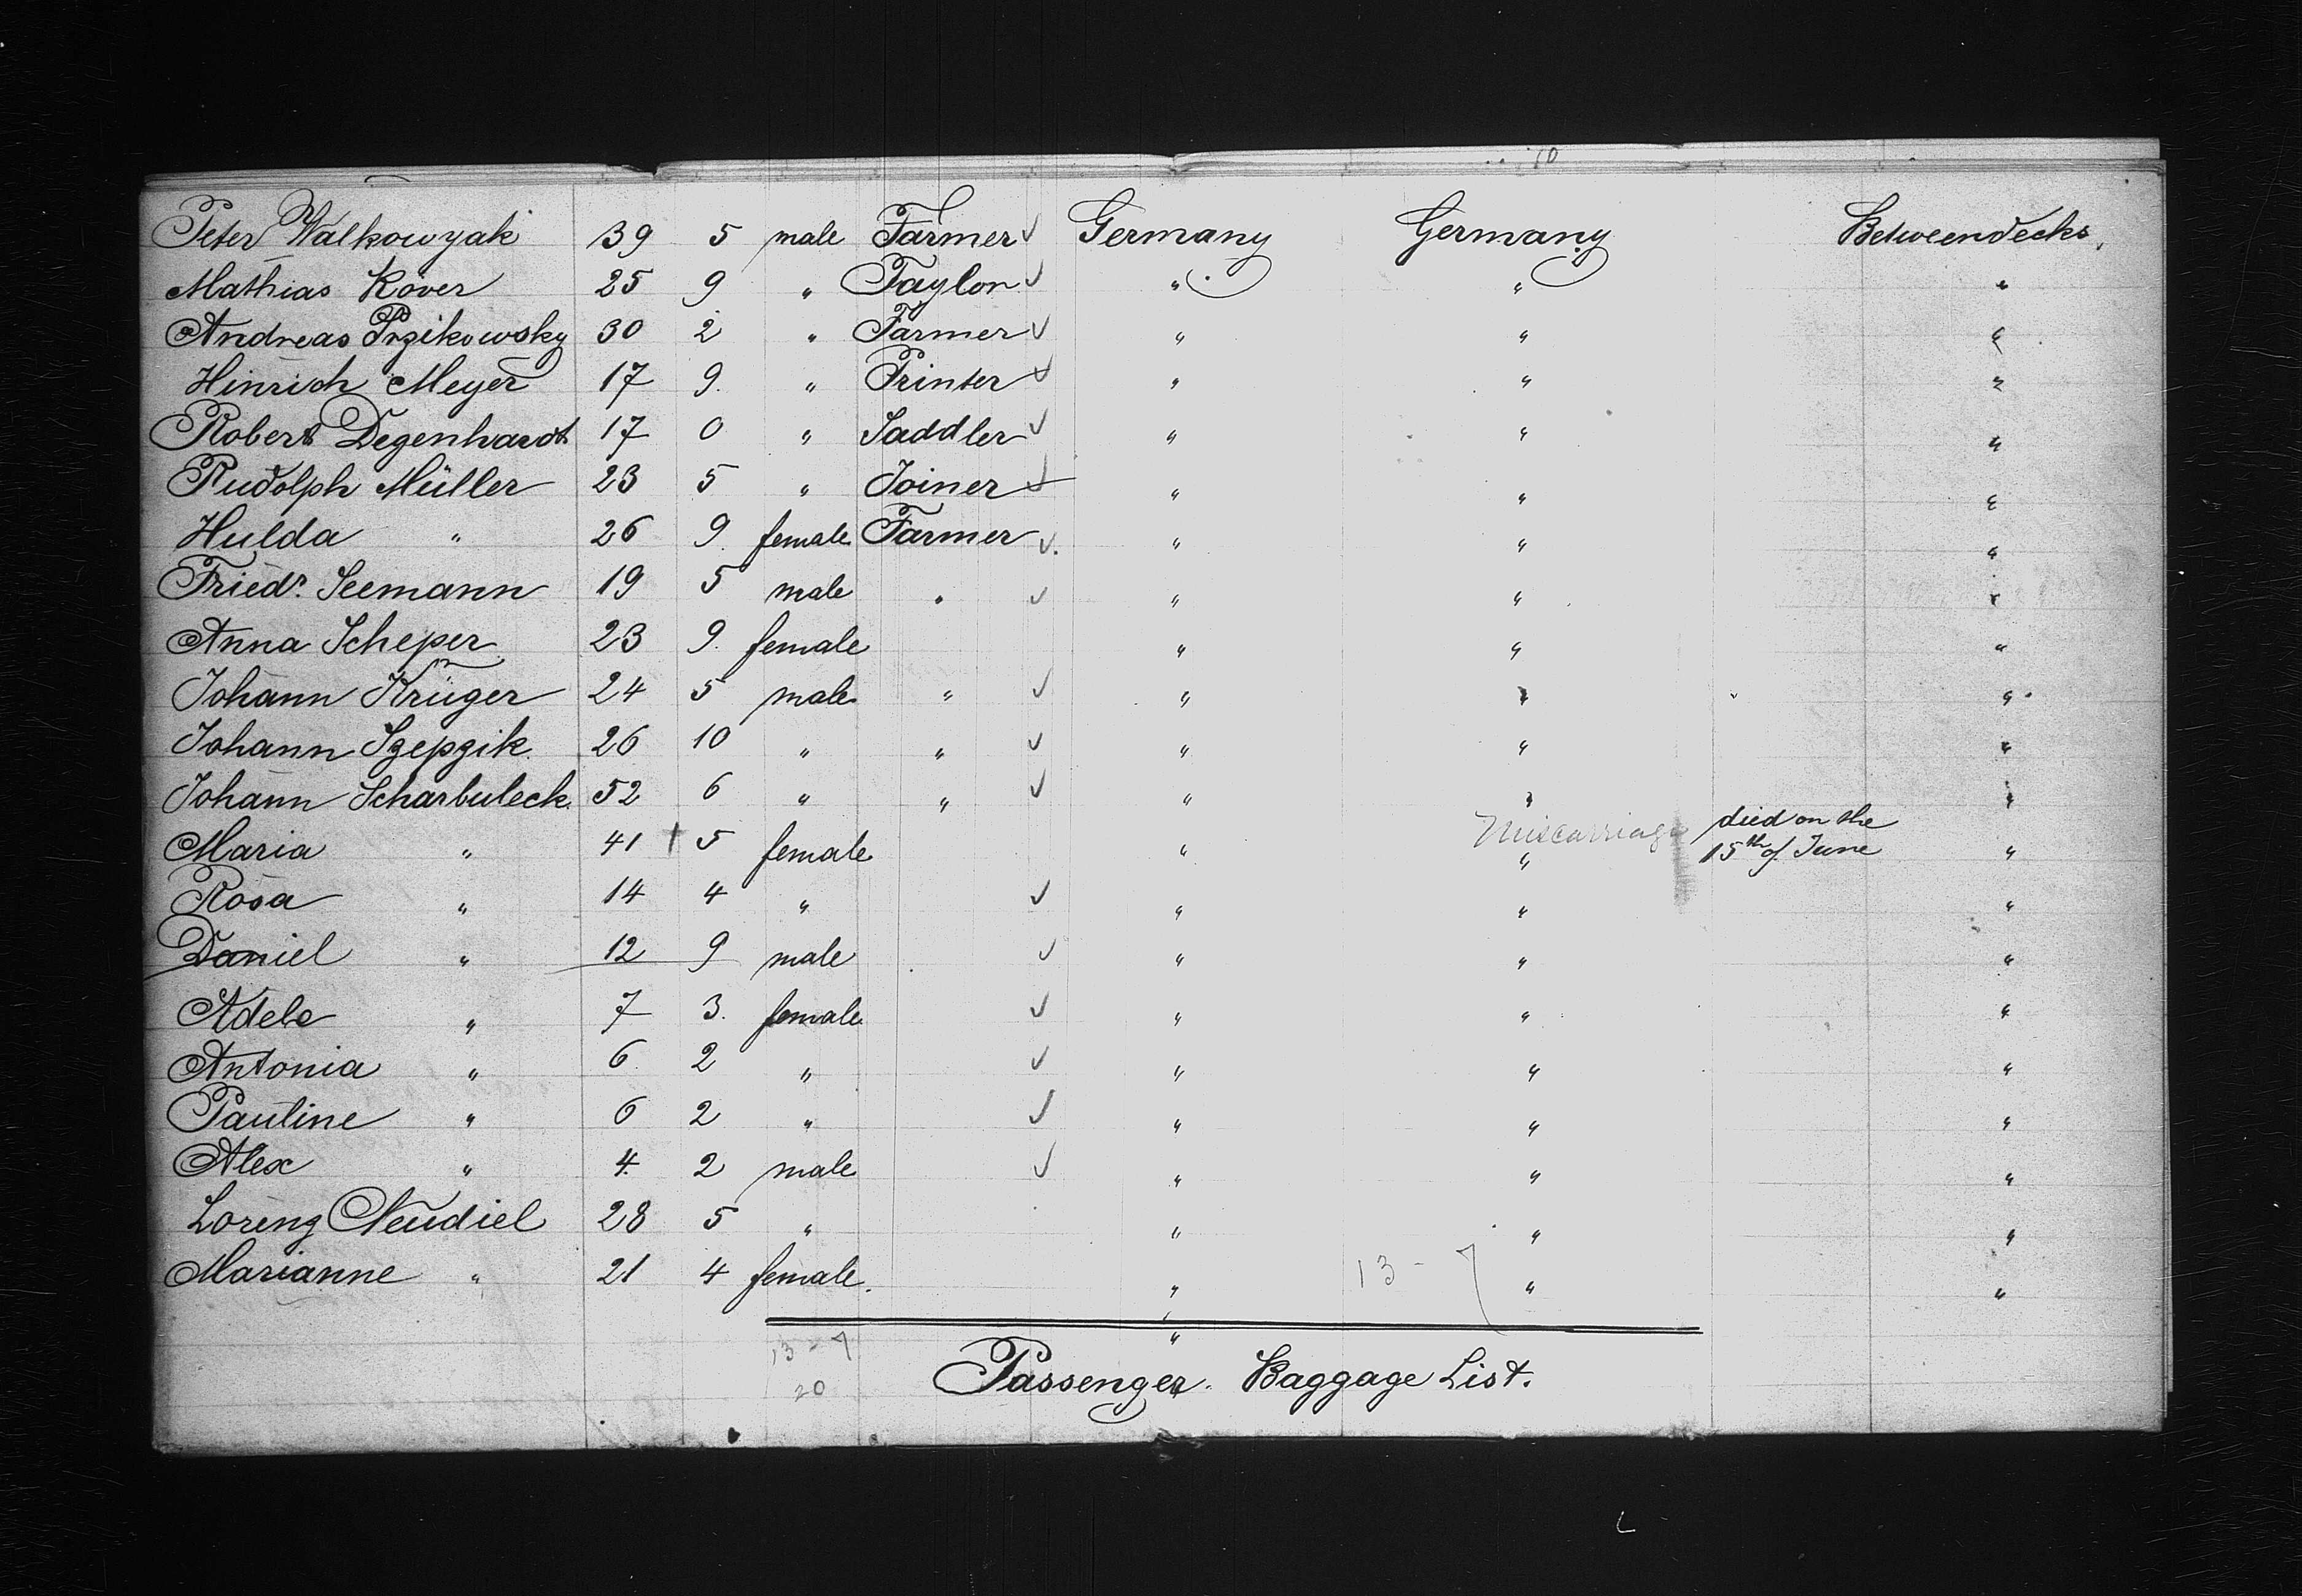 10
Peter Walkowyak 39 5 male Farmer ✓ Germany Germany Betweendecks.
Mathias Köver 25 9 " Taylor ✓ " " "
Andreas Przikowsky 30 2 " Farmer ✓ " " "
Hinrich Meyer 17 9. " Printer ✓ " " "
Robert Degenhardt 17 0 " Saddler ✓ " " "
Rudolph Müller 23 5 " Joiner ✓ " " "
Hulda " 26 9. female Farmer ✓ " " "
Friedr. Seemann 19 5 male " ✓ " " "
Anna Scheper 23 9. female " " "
Johann Krüger 24 5 male " ✓ " " "
Johann Szepzik 26 10 " " ✓ " " "
Johann Scharbuleck 52 6 " " ✓ " " "
Maria " 41 † 5 female " Miscarriage " died on the 15th of June "
Rosa " 14 4 " ✓ " " "
Daniel " 12 9 male ✓ " " "
Adele " 7 3. female ✓ " " "
Antonia " 6 2 " ✓ " " "
Pauline " 6 2 " ✓ " " "
Alex " 4 2 male ✓ " " "
Lorenz Neudiel 28 5 " " " "
Marianne " 21 4 female. " 13 - 7 " "
"
13 - 7
20
Passenger Baggage List.